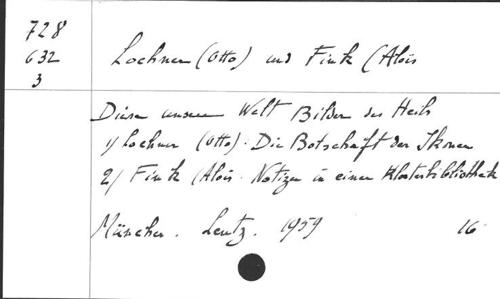 728
632
3
Lochner (Otto) und Fink (Alois
Dieser unserer Welt Bilder des Heils
1/ Lochner (Otto). Die Botschaft der Ikonen
2/ Fink (Alois. Notizen in einer Klosterbibliothek
München. Lentz. 1959 16